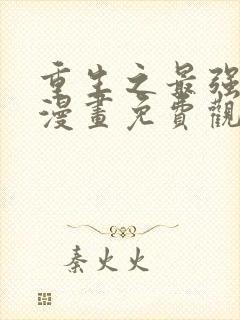 重生之最强
漫畫免費觀
秦火火